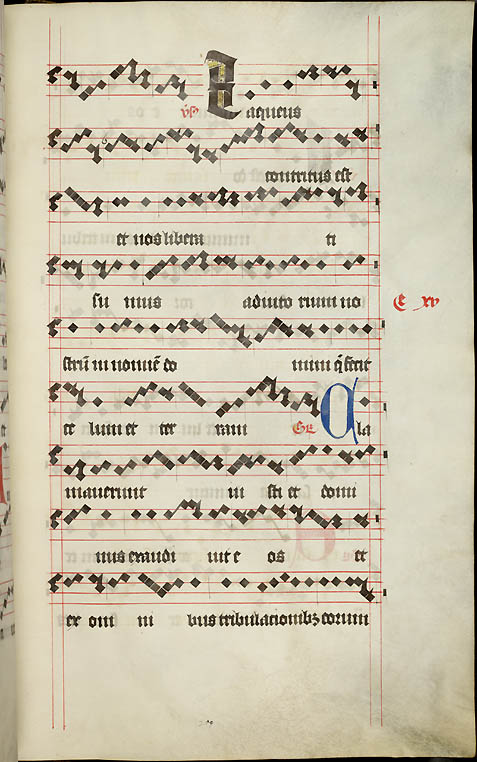 V̄s Laqueus
contritus est
et nos libera ti
su mus adiuto rium no
C xv
strū in nomīe do mini q̄ fecit
ce lum et ter ram Gr Cla
maverunt iu sti et domi
nus exaudi vit e os et
ex om ni bus tribulacionibꝫ eorum